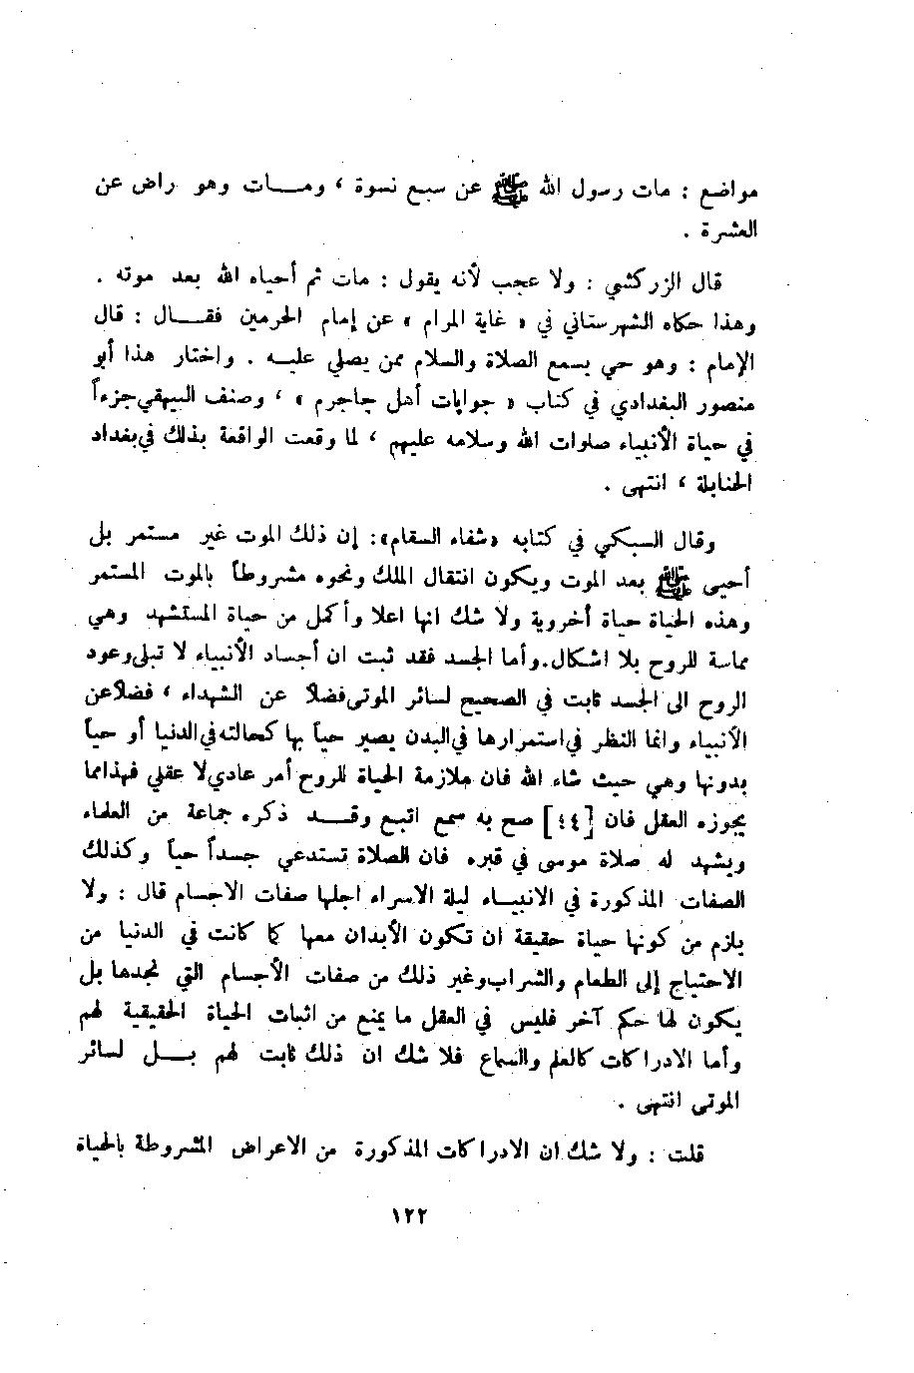 مواضع : مات رسول الله ﷺ عن سبع نسوة ، ومـــات وهو راض عن
العشرة .
قال الزركشي : ولا عجب لأنه يقول : مات ثم أحياه الله بعد موته .
وهذا حكاه الشهرستاني في « غاية المرام » عن إمام الحرمين فقـــال : قال
الإمام : وهو حي يسمع الصلاة والسلام ممن يصلي عليـــه . واختار هذا أبو
منصور البغدادي في كتاب « جوابات أهل جاجرم » ، وصنف البيهقي جزءاً
في حياة الأنبياء صلوات الله وسلامه عليهم ، لما وقعت الواقعة بذلك في بغداد
الحنابلة ، انتهى .
وقال السبكي في كتابه «شفاء السقام»: إن ذلك الموت غير مستمر بل
أحيى ﷺ بعد الموت ويكون انتقال الملك ونحوه مشروطاً بالموت المستمر
وهذه الحياة حياة أخروية ولا شك انها اعلا وأكمل من حياة المستشهد وهي
مماسة للروح بلا اشكال.وأما الجسد فقد ثبت ان أجساد الأنبياء لا تبلى وعود
الروح الى الجسد ثابت في الصحيح لسائر الموتى فضلا عن الشهداء ، فضلاً عن
الأنبياء وانما النظر في استمرارها في البدن يصير حياً بها كحالته في الدنيا أو حياً
بدونها وهي حيث شاء الله فان ملازمة الحياة للروح أمر عادي لا عقلي فهذا مما
يجوزه العقل فان [٤٤] صح به سمع اتبع وقـــد ذكره جماعة من العلماء
ويشهد له صلاة موسى في قبره فان الصلاة تستدعي جسداً حياً وكذلك
الصفات المذكورة في الانبيـــاء ليلة الاسراء اجلها صفات الاجسام قال : ولا
يلزم من كونها حياة حقيقة ان تكون الأبدان معها كما كانت في الدنيا من
الاحتياج إلى الطعام والشراب وغير ذلك من صفات الأجسام التي نجدها بل
يكون لها حكم آخر فليس في العقل ما يمنع من اثبات الحياة الحقيقية لهم
وأما الادراكات كالعلم والسماع فلا شك ان ذلك ثابت لهم بـــل لسائر
الموتى انتهى .
قلت : ولا شك ان الادراكات المذكورة من الاعراض المشروطة بالحياة
١٢٢